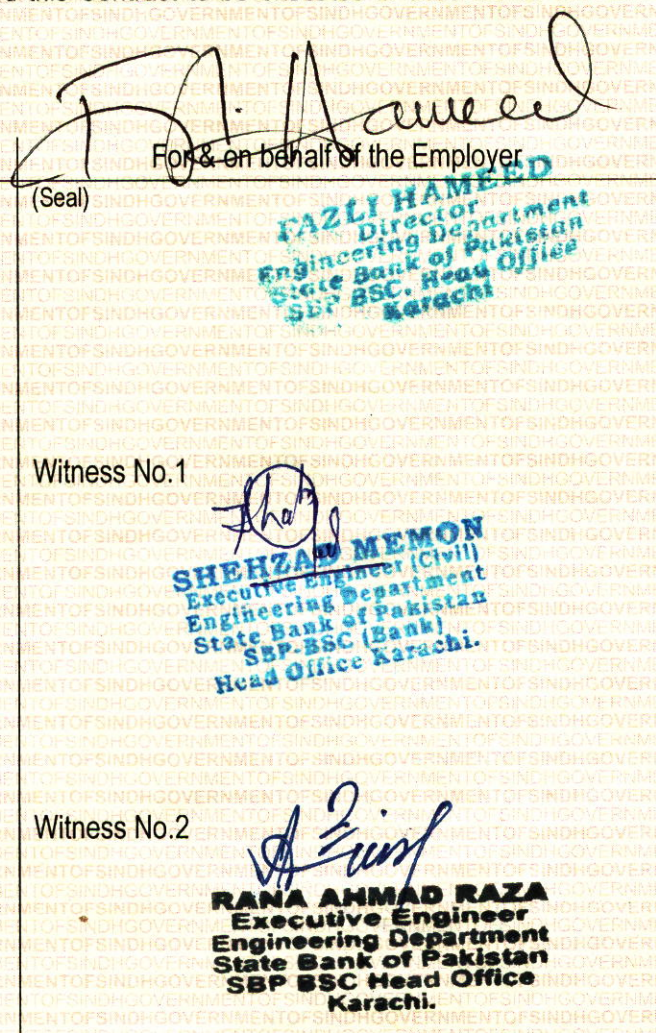 For & on behalf of the Employer
(Seal)
FAZLI HAMEED
Director
Engineering Department
State Bank of Pakistan
SBP BSC. Head Office
Karachi
Witness No.1
SHEHZAD MEMON
Executive Engineer (Civil)
Engineering Department
State Bank of Pakistan
SBP-BSC (Bank)
Head Office Karachi.
Witness No.2
RANA AHMAD RAZA
Executive Engineer
Engineering Department
State Bank of Pakistan
SBP BSC Head Office
Karachi.